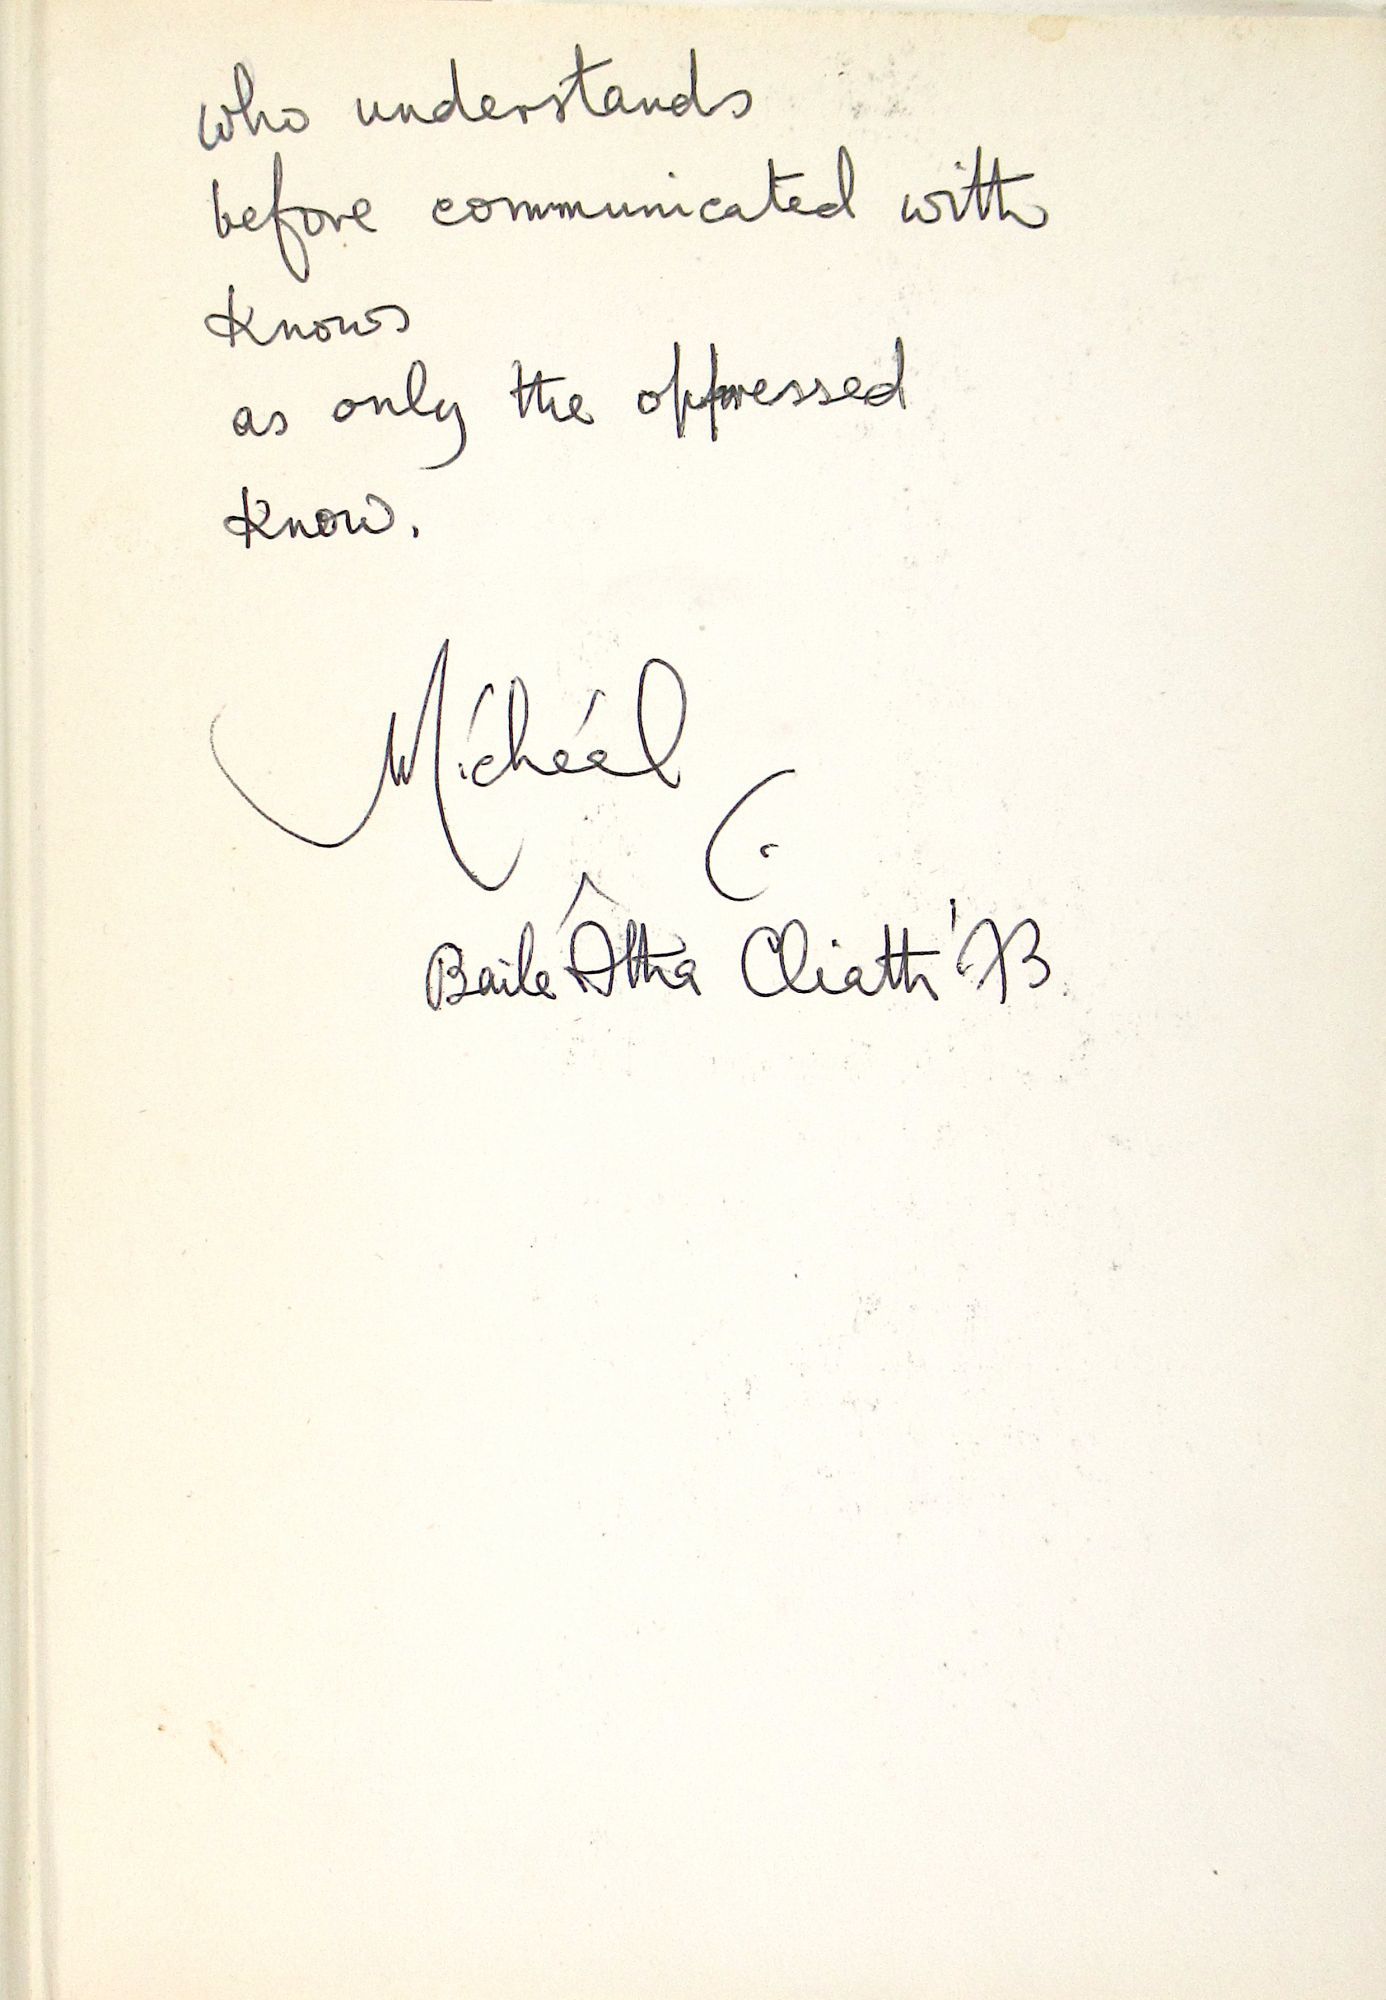 who understands
before communicated with
knows
as only the oppressed
know.
Mícheál
Baile Átha Cliath '73